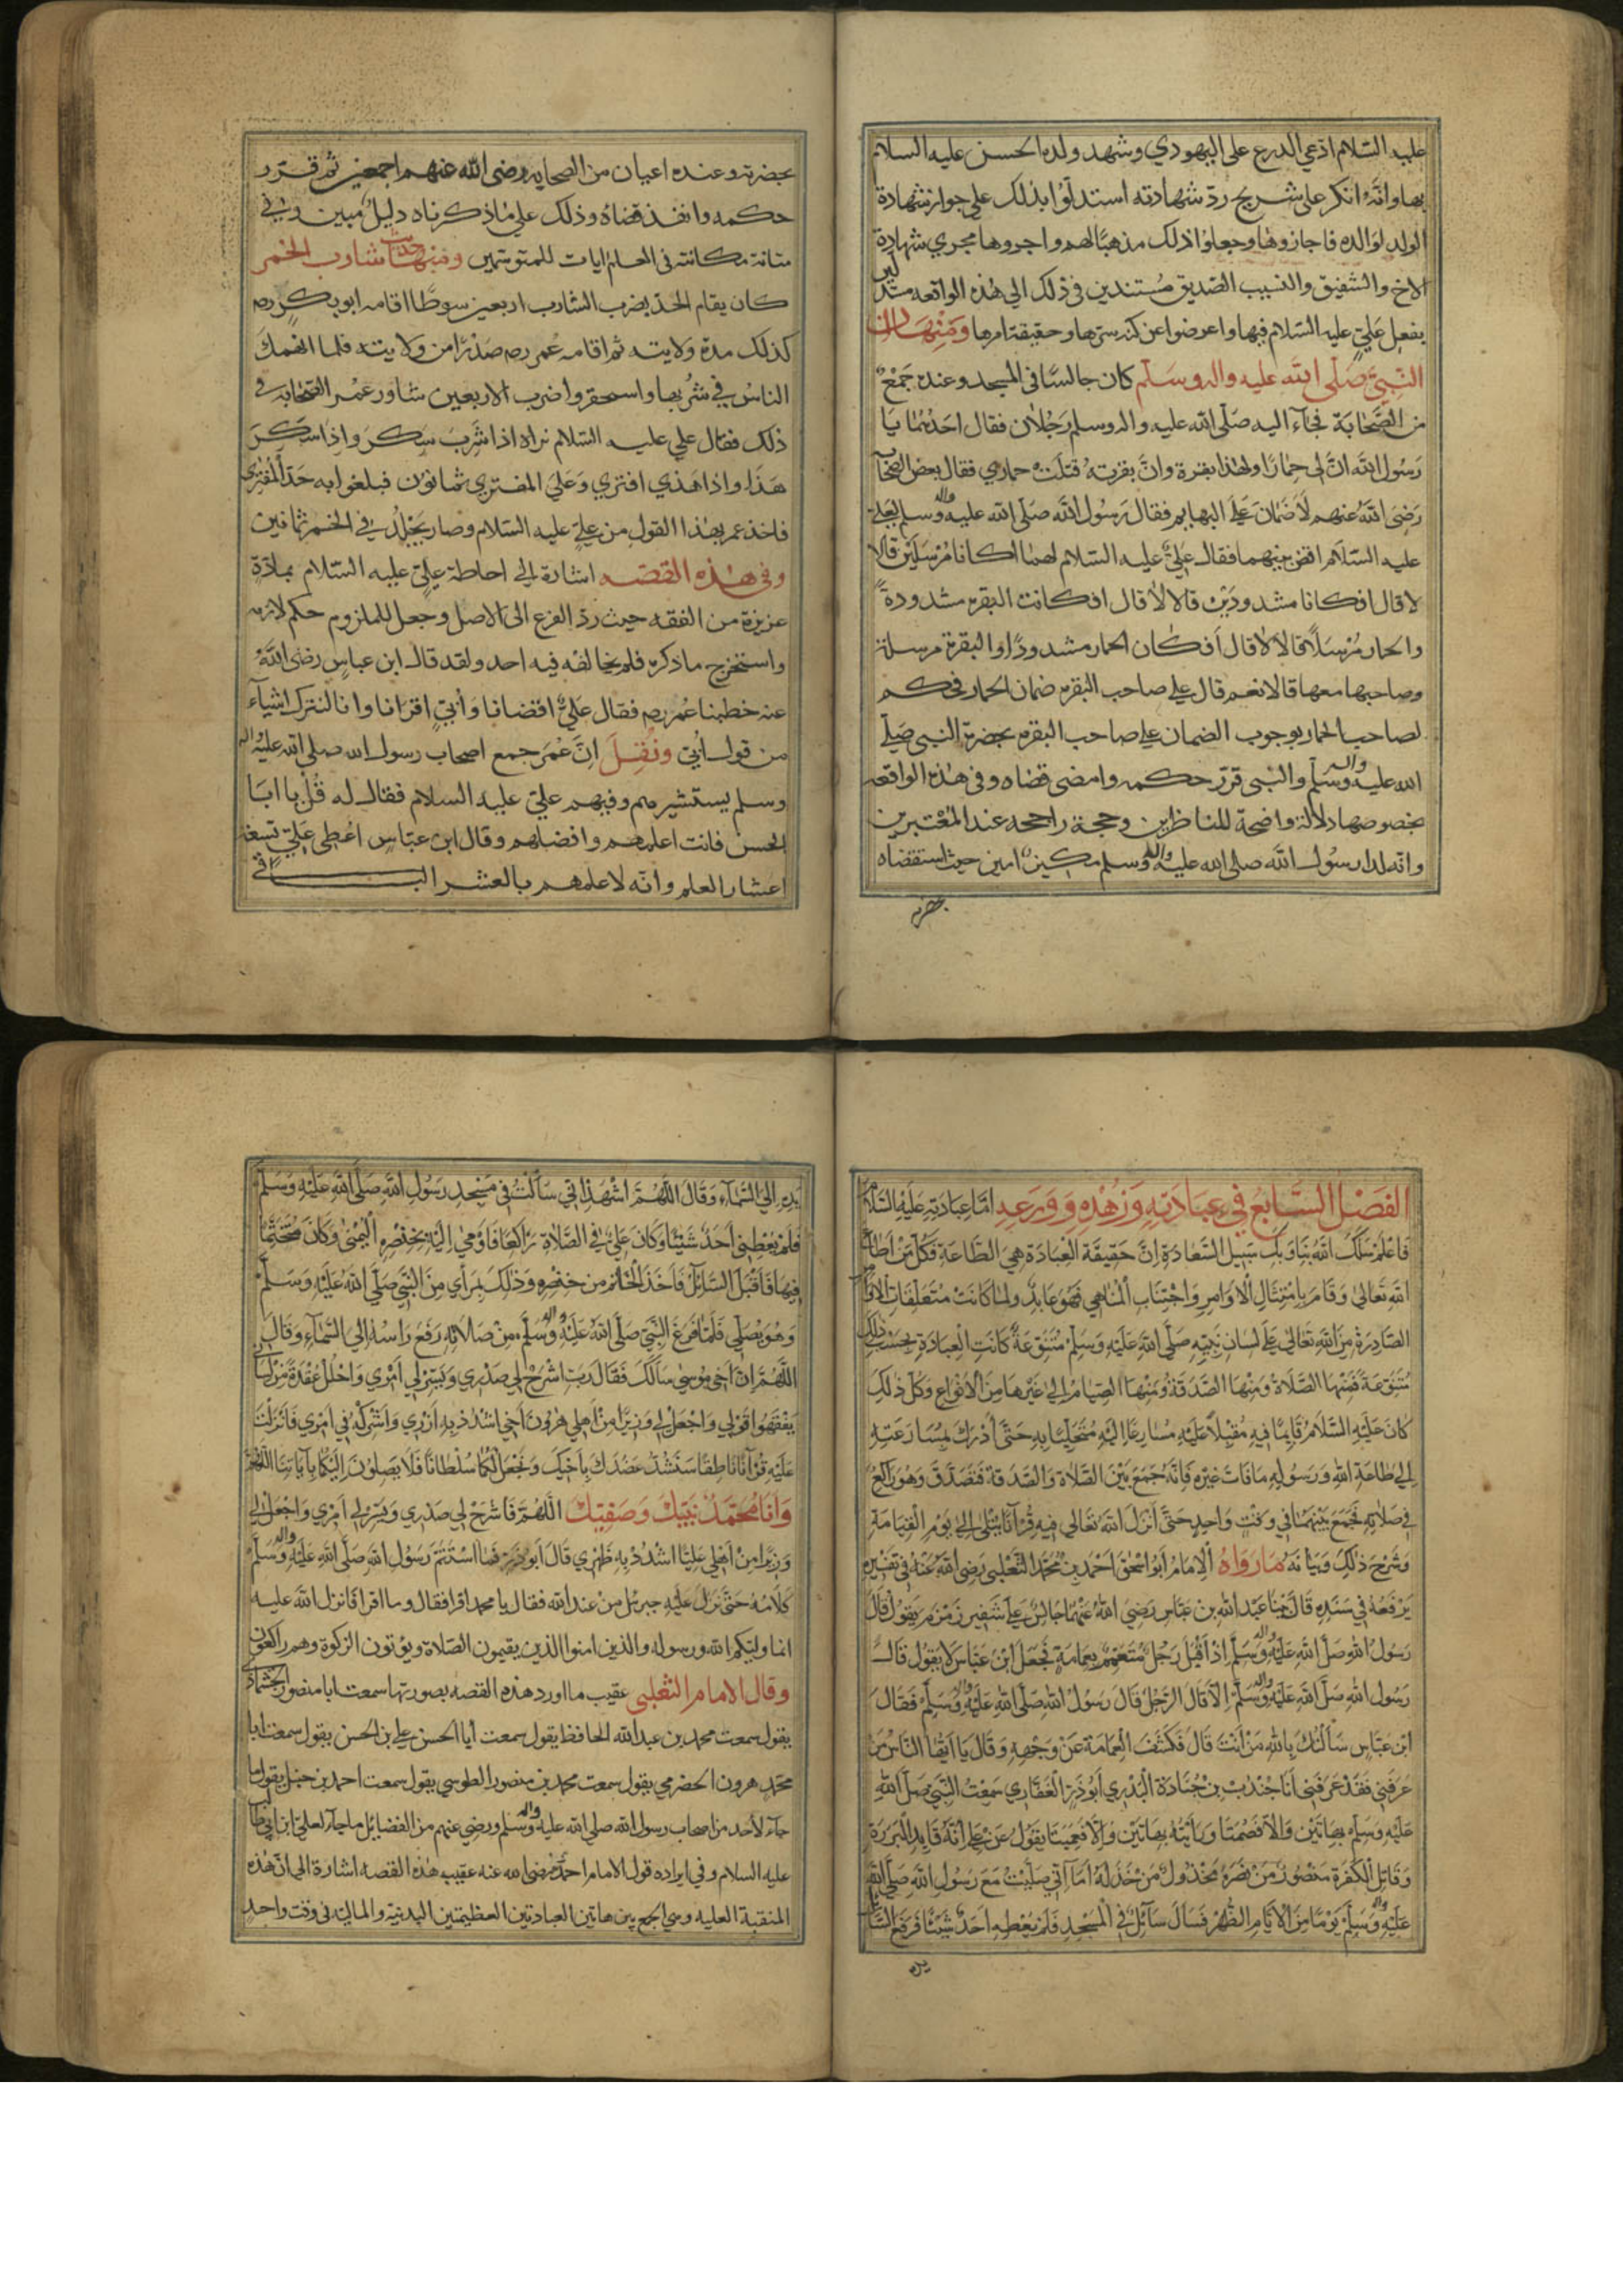 عليه السلام ادعي الدرع على اليهودي وشهد ولده الحسن عليه السلام
بها وانه انكر على شريح ردّ شهادته استدلّوا بذلك على جواز شهادة
الولد لوالده فاجازوها وجعلوا ذلك مذهبًا لهم واجروها مجري شهادة
الاخ والشفيق والنسيب الصديق مستندين فى ذلك الي هذه الواقعه
بفعل علي عليه السلام فيها واعرضوا عن كنه سرّها وحقيقة امرها ومنها ان
النبي صلّى الله عليه واله وسلّم كان جالسًا فى المسجد وعنده جمع
من الصحابة فجاء اليه صلّى الله عليه واله وسلم رجلان فقال احدهما يا
رسول الله انّ لي حمارًا ولهذا بقرة وانّ بقرته قتلت حماري فقال بعض الصحابة
رضي الله عنهم لا ضمان على البهايم فقال رسول الله صلّى الله عليه واله وسلم لعلي
عليه السلام اقض بينهما فقال علي عليه السلام لهما اكانا مرسلين قالا
لا قال افكانا مشدودين قالا لا قال افكانت البقره مشدودة
والحمار مرسلًا قالا لا قال أفكان الحمار مشدودًا والبقرة مرسلة
وصاحبها معها قالا نعم قال علي صاحب البقره ضمان الحمار فحكم
لصاحب الحمار بوجوب الضمان علي صاحب البقره بحضرة النبي صلّي
الله عليه واله وسلّم والنبي قرّر حكمه وامضى قضاه وفى هذه الواقعه
بخصوصها دلالة واضحة للناظرين وحجة راجحه عند المعتبرين
وانه لدا رسول الله صلى الله عليه واله وسلم مكين امين حيث استقضاه
بحضرته
بحضرته وعنده اعيان من الصحابه رضى الله عنهم اجمعين ثم قرر
حكمه وانفذ قضاه وذلك علي ما ذكرناه دليل مبين وفي
متانة مكانته فى العلم ايات للمتوسّمين ومنها حديث شارب الخمر
كان يقام الحدّ بضرب الشارب اربعين سوطًا اقامه ابو بكر رضه
كذلك مدة ولايته ثم اقامه عمر رضه صدرًا من ولايته فلما انهمك
الناس في شربها واستحقروا ضرب الاربعين شاور عمر الصحابه فى
ذلك فقال علي عليه السلام نراه اذا شرب سكر واذا سكر
هذا واذا هذي افتري وعلى المفتري ثمانون فبلغوا به حدّ المفتري
فاخذ عمر بهذا القول من علي عليه السلام وصار يجلد في الخمر ثمانين
وفى هذه القصه اشارة الى احاطة علي عليه السلام بمادّة
عزيزة من الفقه حيث ردّ الفرع الى الاصل وجعل للملزوم حكم لازمه
واستخرج ما ذكره فلم يخالفه فيه احد ولقد قال ابن عباس رضى الله
عنه خطبنا عمر رضه فقال علي اقضانا وأبي اقرانا وانا لنترك اشيآء
من قول أبي ونقل انّ عمر جمع اصحاب رسول الله صلى الله عليه واله
وسلم يستشيرهم وفيهم علي عليه السلام فقال له قل يا ابا
الحسن فانت اعلمهم وافضلهم وقال ابن عباس اعطى علي تسعة
اعشار العلم وانه لاعلمهم بالعشر الباقى
الفصل السابع في عبادته وزهده وورعه امّا عبادته عليه السلام
فاعلم سلك الله بنا وبك سبيل السعادة انّ حقيقة العبادة هي الطاعة فكل من اطاع
الله تعالى وقام بامتثال الاوامر واجتناب المناهي فهو عابد ولما كانت متعلقات الاوامر
الصادرة من الله تعالى على لسان نبيّه صلّى الله عليه وسلم متنوعة كانت العبادة بحسب ذلك
متنوعة فمنها الصلاة ومنها الصدقة ومنها الصيام الى غيرها من الانواع وكل ذلك
كان عليه السلام قايمًا فيه مقبلًا عليه مسارعًا اليه متحليًا به حتى أدرك بمسارعته
الي طاعة الله ورسوله ما فات غيره فانه جمع بين الصلاة والصدقة فتصدق وهو راكع
في صلاته فجمع بينهما في وقت واحد حتى أنزل الله تعالى فيه قرآنا يتلى الى يوم القيامة
وشرح ذلك وبيانه ما رواه الامام أبو اسحق احمد بن محمد الثعلبي رضي الله عنه فى تفسيره
يرفعه في سنده قال بينا عبد الله بن عباس رضي الله عنهما جالس على شفير زمزم يقول قال
رسول الله صلّى الله عليه واله وسلّم اذ أقبل رجل متعمم بعمامة فجعل ابن عباس لا يقول قال
رسول الله صلّى الله عليه واله وسلّم الّا قال الرجل قال رسول الله صلّى الله عليه واله وسلّم فقال
ابن عباس سألتك بالله من أنت قال فكشف العمامة عن وجهه وقال يا ايّها الناس من
عرفني فقد عرفني انا جندب بن جنادة البدري أبو ذر الغفاري سمعت النبي صلّى الله
عليه وسلّم بهاتين والّا فصمّتا ورأيته بهاتين والّا فعميتا يقول عن علي انّه قايد البررة
وقاتل الكفرة منصور من نصره مخذول من خذله اما اني صلّيت مع رسول الله صلّى الله
عليه واله وسلّم يومًا من الايام الظهر فسأل سآئل في المسجد فلم يعطه احد شيئًا فرفع السآئل
يده
يده الى السماء وقال اللهم اشهد اني سألت فى مسجد رسول الله صلّى الله عليه وسلّم
فلم يعطني احد شيئًا وكان علي في الصلاة راكعًا فاومى اليه بخنصره اليمنى وكان متختما
فيها فاقبل السآئل فأخذ الخاتم من خنصره وذلك بمرأي من النبي صلّى الله عليه وسلّم
وهو يصلي فلما فرغ النبي صلّى الله عليه واله وسلّم من صلاته رفع راسه الى السماء وقال
اللهم ان أخي موسى سألك فقال رب اشرح لي صدري ويسّر لي أمري واحلل عقدة من لساني
يفقهوا قولي واجعل لي وزيرا من أهلي هرون أخي اشدد به ازري واشركه في امري فأنزلت
عليه قرآنًا ناطقًا سنشدّ عضدك باخيك ونجعل لكما سلطانًا فلا يصلون اليكما بآياتنا اللهم
وانا محمد نبيك وصفيك اللهم فاشرح لي صدري ويسّر لي امري واجعل لي
وزيرا من اهلي عليًا اشدد به ظهري قال ابو ذر فما استتم رسول الله صلّى الله عليه واله وسلّم
كلامه حتى نزل عليه جبريل من عند الله فقال يا محمد اقرا فقال وما اقرا فانزل الله عليه
انما وليكم الله ورسوله والذين امنوا الذين يقيمون الصلاة ويؤتون الزكوة وهم راكعون
وقال الامام الثعلبي عقيب ما اورد هذه القصه بصورتها سمعت ابا منصور الجمشاذي
يقول سمعت محمد بن عبد الله الحافظ يقول سمعت أبا الحسن علي بن الحسن يقول سمعت ابا
محمد هرون الحضرمي يقول سمعت محمد بن منصور الطوسي يقول سمعت احمد بن حنبل يقول ما
جآء لأحد من اصحاب رسول الله صلي الله عليه واله وسلم ورضي عنهم من الفضايل ما جآء لعلي ابن ابي طالب
عليه السلام وفي ايراده قول الامام احمد رضى الله عنه عقيب هذه القصه اشارة الى انّ هذه
المنقبة العليه وهي الجمع بين هاتين العبادتين العظيمتين البدنية والمالية فى وقت واحد